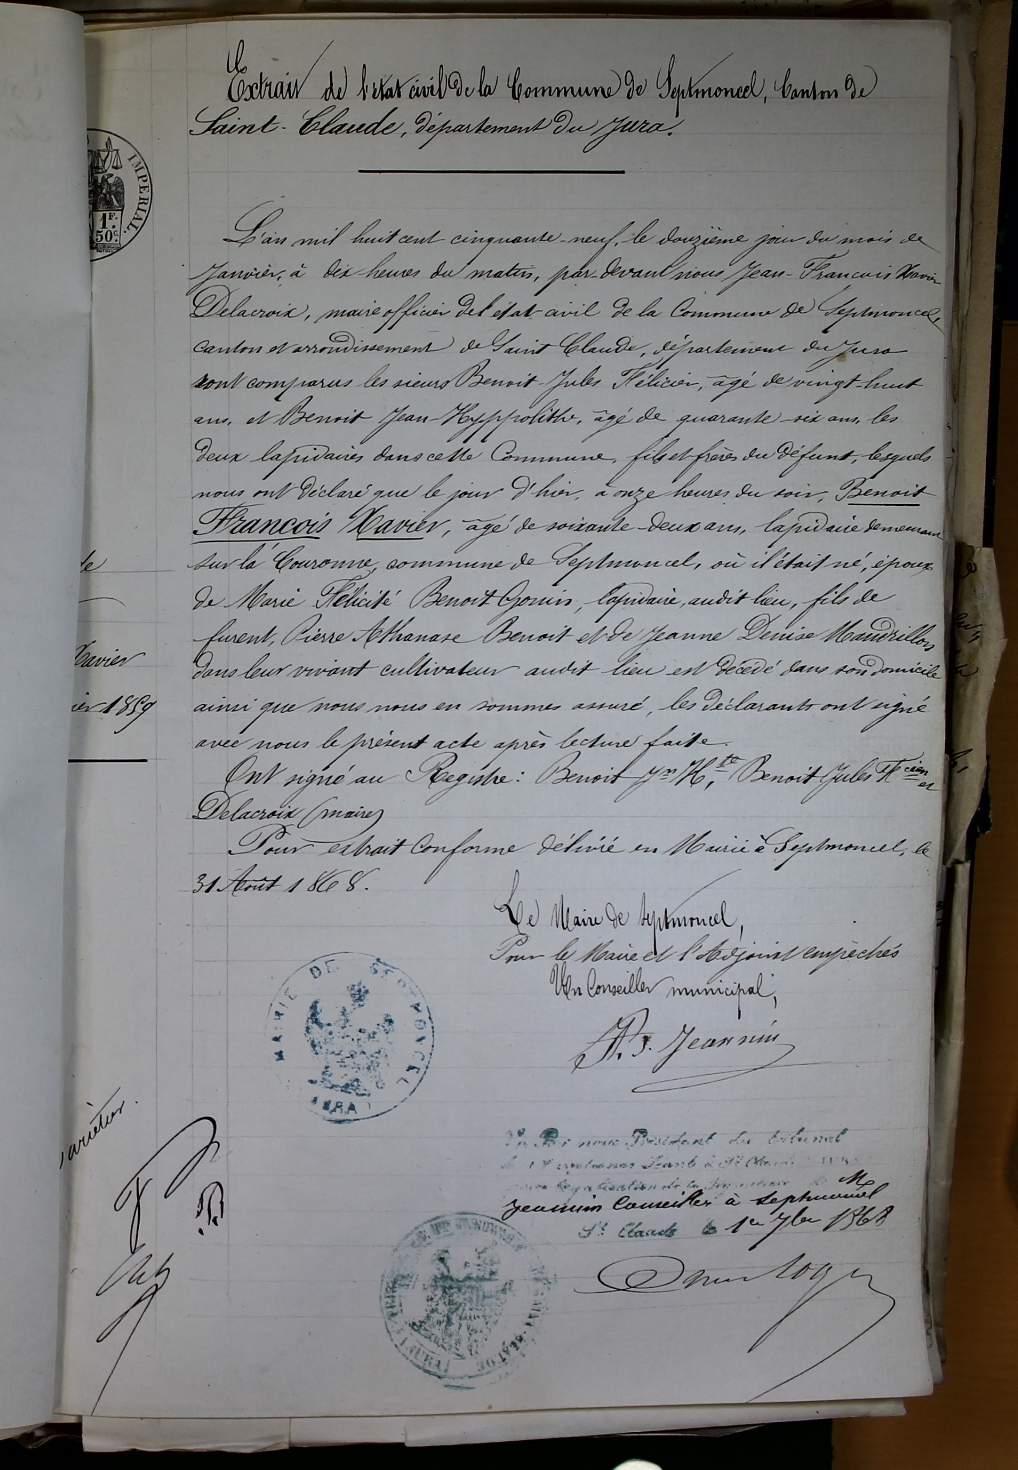 Extrait de l'état civil de la Commune de Septmoncel, Canton de
Saint-Claude, département du Jura.
IMPERIAL.
1F.
50c.
L'an mil huit cent cinquante-neuf, le douzième jour du mois de
Janvier, à dix heures du matin, par-devant nous Jean-François Xavier
Delacroix, maire officier de l'état-civil de la Commune de Septmoncel,
canton et arrondissement de Saint Claude, département du Jura
sont comparus les sieurs Benoit Jules Félicien, âgé de vingt-huit
ans, et Benoit Jean-Hyppolithe, âgé de quarante-six ans, les
deux lapidaires dans cette Commune, fils et frères du défunt, lesquels
nous ont déclaré que le jour d'hier, à onze heures du soir, Benoit
François Xavier, âgé de soixante-deux ans, lapidaire demeurant
sur la Couronne, commune de Septmoncel, où il était né, époux
de Marie Félicité Benoit Gonin, lapidaire, audit lieu, fils de
furent, Pierre Athanase Benoit et de Jeanne Denise Mandrillon
dans leur vivant cultivateur audit lieu est décédé dans son domicile
ainsi que nous nous en sommes assuré, les déclarants ont signé
avec nous le présent acte après lecture faite.
Xavier
ier 1859
Ont signé au Registre: Benoit Jn Hte, Benoit Jules Fcien et
Delacroix (maire)
Pour extrait Conforme délivré en Mairie à Septmoncel, le
31 Août 1868.
Le Maire de Septmoncel,
Pour le Maire et l'Adjoint empêchés
Un Conseiller municipal,
MAIRIE DE SEPTMONCEL
JURA
P. J. Jeannin
Vu Par nous Président du tribunal
de 1re instance Séant à St Claude
pour légalisation de la signature de M
Jeannin Conseiller à Septmoncel
St Claude le 1er 7bre 1868